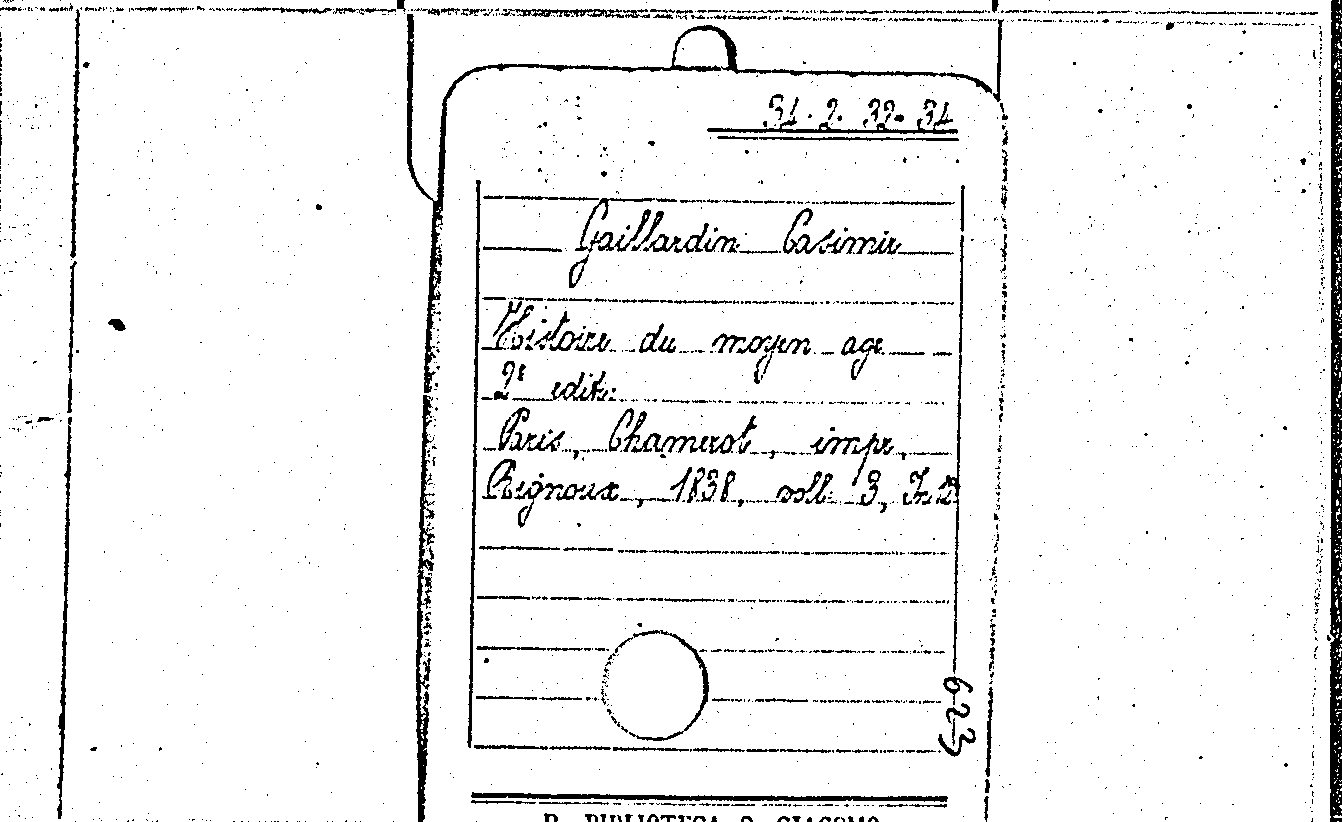 34. 2. 32-34
Gaillardin Casimir
Histoire du moyen age
2e edit.
Paris, Chamerot, impr.
Rignoux, 1838, voll. 3, In 12
623
R. BIBLIOTECA S. GIACOMO